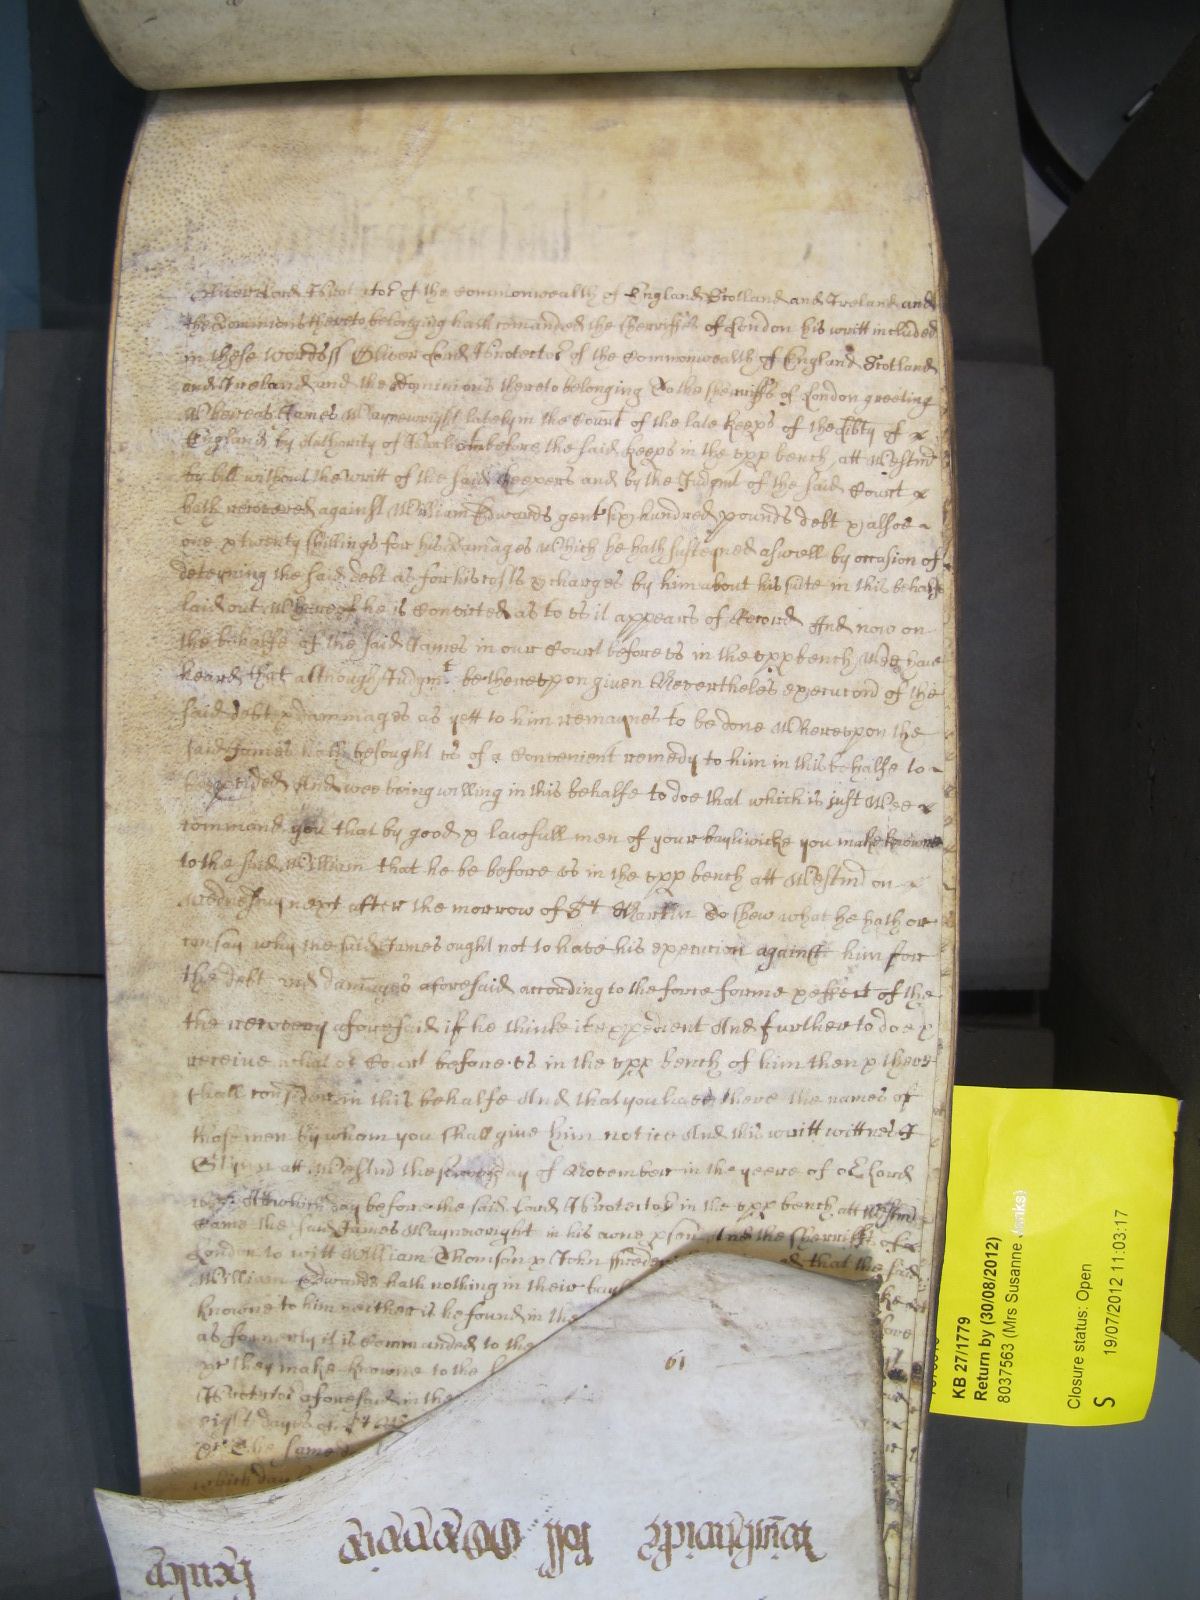 Oliver Lord Protector of the Commonwealth of England Scotland and Ireland and
the Dominions thereto belonging hath comanded the Sherriffes of London his writt included
in these words ss Oliver Lord Protector of the Commonwealth of England Scotland
and Ireland and the Dominions thereto belonging To the Sherriffs of London greeting
Whereas James Waynewright lately in the Court of the late Keeps of the libty of
England by Authority of Parliamt before the said Keeps in the upp bench att Westmr
by bill without the writt of the said Keepers and by the Judgmt of the said Court
hath recovered against William Edwards gent six hundred pounds debt & alsoe
one & twenty shillings for his Damages which he hath susteyned aswell by occasion of
deteyning the said debt as for his costs & charges by him about his sute in this behalfe
laid out Whereof he is Convicted as to us it appears of Record And now on
the behalfe of the said James in our Court before us in the upp bench Wee have
heard that although Judgmt be thereupon given Nevertheles execucon of the
said debt & dammages as yett to him remaynes to be done Whereupon the
said James hath besought us of a Convenient remedy to him in this behalfe to
be provided And wee being willing in this behalfe to doe that which is just Wee
command you that by good & lawfull men of your bayliwicke you make knowne
to the said William that he be before us in the upp bench att Westmr on
Wednesday next after the morrow of St Martin To shew what he hath or
can say why the said James ought not to have his execution against him for
the debt and damages aforesaid according to the force forme & effect of the
the recovery aforesaid if he thinke it expedient And further to doe &
receive what or Court before us in the upp bench of him then & there
shall consider in this behalfe And that you have there the names of
those men by whom you shall give him notice And this writt wittnes J
Glynn att Westmr the day of November in the yeere of our Lord
At which day before the said Lord Protector in the upp bench att Westmr
Came the said James Waynwright in his owne pson And the Sherriffs of
London to witt William Thomson & John ed that the said
William Edwards hath nothing in their bayl
knowne to him neither is he found in the
as formerly it is Commanded to the
they make knowne to the
Protector aforesaid in the
eight dayes of St
The same
which day
61
Roll
KB 27/1779
Return by (30/08/2012)
8037563 (Mrs Susanne Jenks)
Closure status: Open
S
19/07/2012 11:03:17